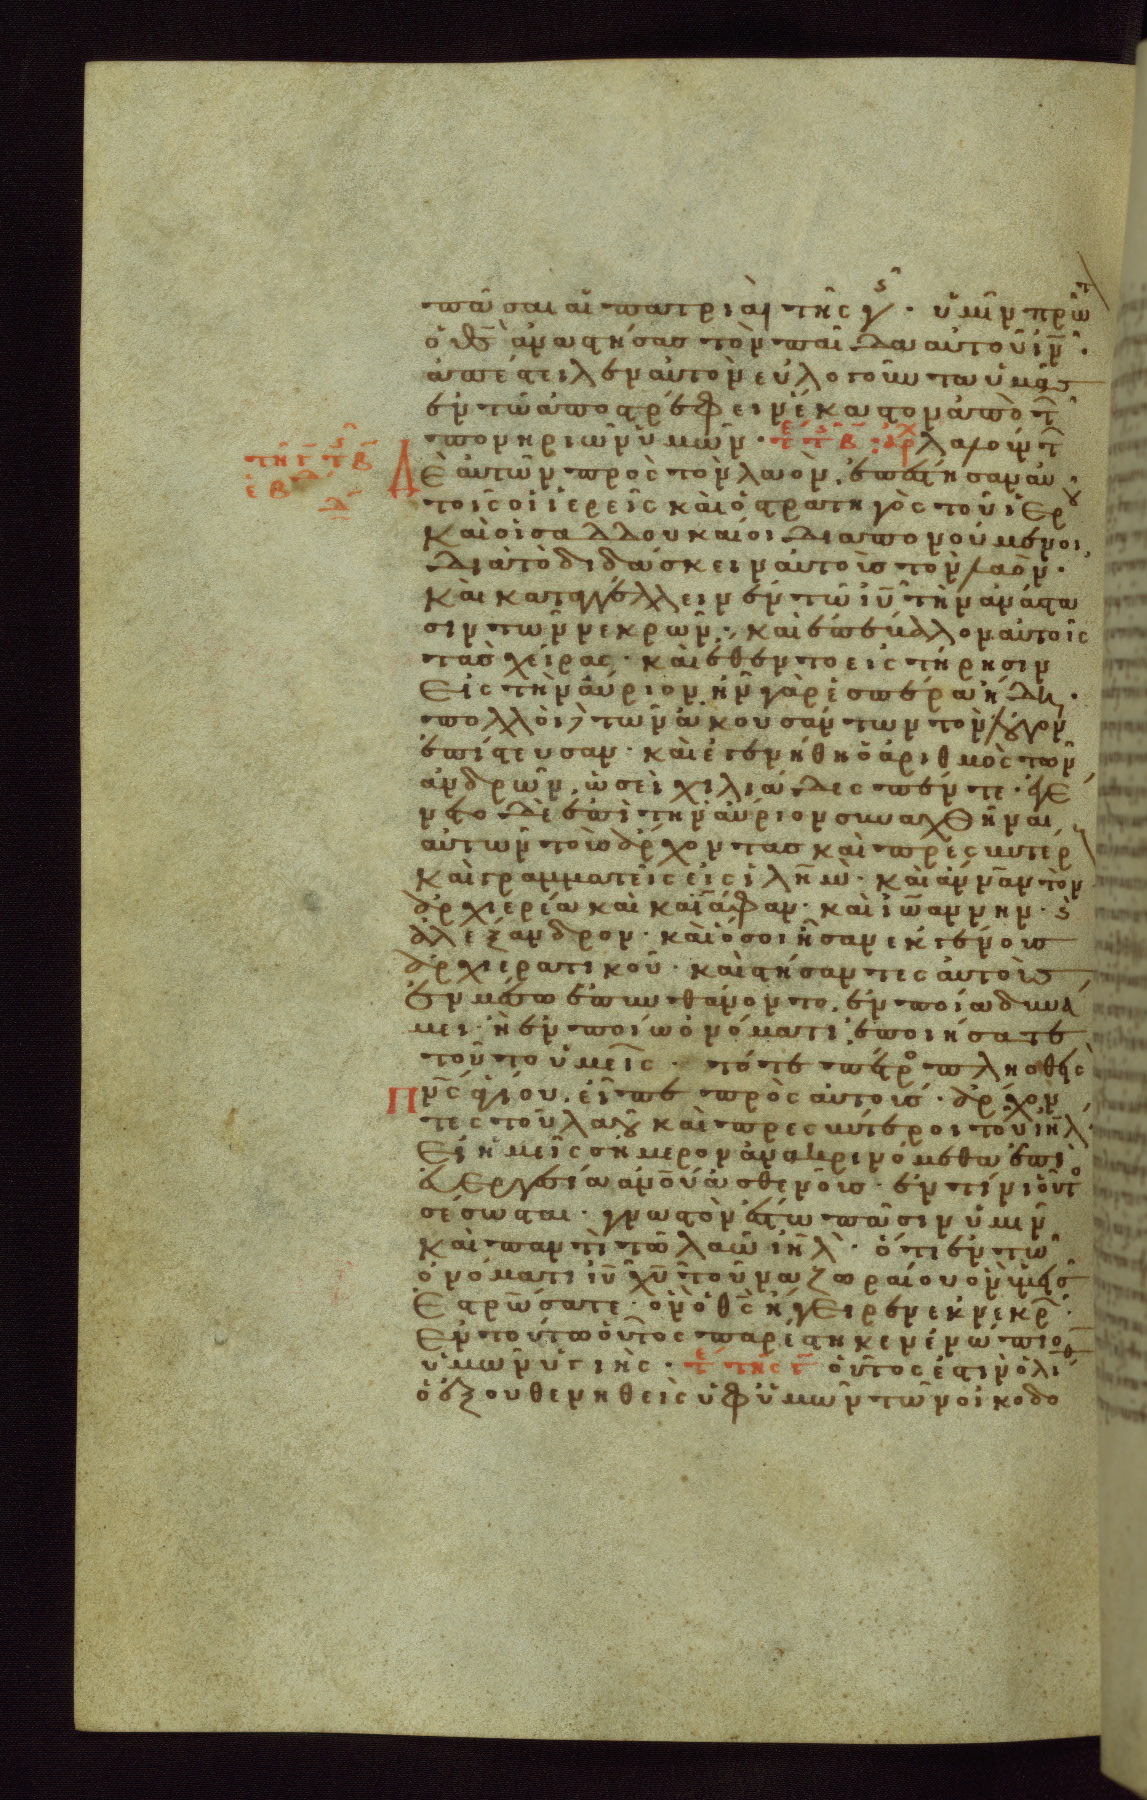 πᾶσαι αἱ πατριαὶ τῆς γῆς· ὑμῖν πρῶτ
ὁ θς ἀναστήσας τὸν παῖδα αὐτοῦ ἰν·
ἀπέστειλεν αὐτὸν εὐλογοῦντα ὑμᾶς
ἐν τῶ ἀποστρέφειν ἕκαστον ἀπὸ τ
πονηριῶν ὑμῶν· λαλούντ
Δὲ αὐτῶν πρὸς τὸν λαὸν, ἐπέστησαν αὐ
τοῖς οἱ ἱερεῖς καὶ ὁ στρατηγὸς τοῦ ἱερ
καὶ οἱ σαδδουκαῖοι διαπονούμενοι,
διὰ τὸ διδάσκειν αὐτοὺς τὸν λαὸν·
καὶ καταγγέλλειν ἐν τῶ ιυ τὴν ἀνάστα
σιν τῶν νεκρῶν· καὶ ἐπέβαλον αὐτοῖς
τὰς χεῖρας· καὶ ἔθεντο εἰς τήρησιν
εἰς τὴν αὔριον ἦν γὰρ ἑσπέρα ἤδη·
πολλοὶ δὲ τῶν ἀκουσάντων τὸν λόγον
ἐπίστευσαν· καὶ ἐγενήθη ὁ ἀριθμὸς τῶν
ἀνδρῶν, ὡσεὶ χιλιάδες πέντε· ἐγέ
νετο δὲ ἐπὶ τὴν αὔριον συναχθῆναι
αὐτῶν τοὺς ἄρχοντας καὶ πρεσβυτέρ
καὶ γραμματεῖς εἰς ἱλημ· καὶ ἄνναν τὸν
ἀρχιερέα καὶ καϊάφαν· καὶ ἰωάννην· ϛ
ἀλέξανδρον· καὶ ὅσοι ἦσαν ἐκ γένους
ἀρχιερατικοῦ· καὶ στήσαντες αὐτοὺς
ἐν μέσω ἐπυνθάνοντο, ἐν ποία δυνά
μει· ἢ ἐν ποίω ὀνόματι ἐποιήσατε
τοῦτο ὑμεῖς· τότε πέτρο πλησθεὶς
Πνς ἁγίου, εἶπε πρὸς αὐτούς· ἄρχον
τες τοῦ λαοῦ καὶ πρεσβύτεροι τοῦ ιηλ
εἰ ἡμεῖς σήμερον ἀνακρινόμεθα ἐπὶ
εὐεργεσία ἀνου ἀσθενοῦς· ἐν τίνι οὗτο
σέσωσται· γνωστὸν ἔστω πᾶσιν ὑμῖν
καὶ παντὶ τῶ λαῶ ιηλ· ὅτι ἐν τῶ
ὀνόματι ιυ χυ τοῦ ναζωραίου ὃν ὑμεῖς
ἐσταυρώσατε· ὃν ὁ θς ἤγειρεν ἐκ νεκρ·
ἐν τούτω οὗτος παρέστηκεν ἐνώπιο
ὑμῶν ὑγιής· οὗτός ἐστιν ὁ λίθ
ὁ ἐξουθενηθεὶς ὑφ ὑμῶν τῶν οἰκοδο